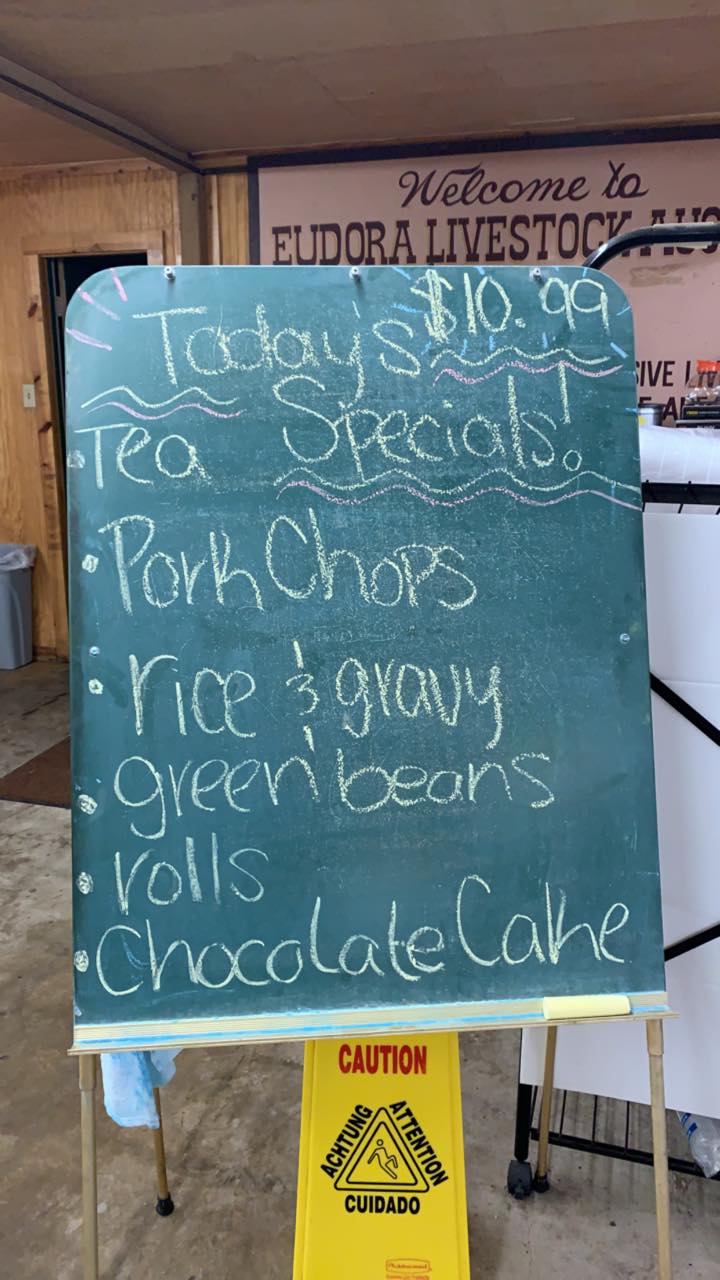 Welcome to
EUDORA LIVESTOCK AUC
SIVE
Today's $10.99
Specials!
Tea
Pork Chops
rice & gravy
green beans
rolls
Chocolate Cake
CAUTION
ACHTUNG
ATTENTION
CUIDADO
Rubbermaid